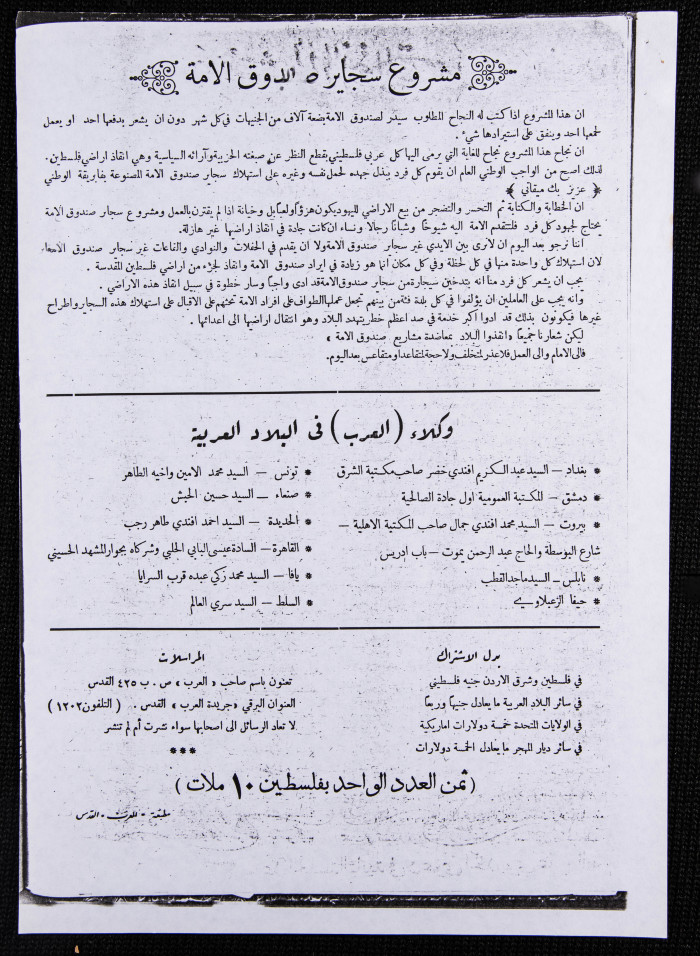 مشروع سجاير صندوق الامة
ان هذا المشروع اذا كتب له النجاح المطلوب سيدر لصندوق الامة بضعة آلاف من الجنيهات في كل شهر دون ان يشعر بدفعها احد او يعمل
لجمعها احد وينفق على استيرادها شيء .
ان نجاح هذا المشروع نجاح للغاية التي يرمى اليها كل عربي فلسطيني بقطع النظر عن صبغته الحزبية وآرائه السياسية وهي انقاذ اراضي فلسطين.
لذلك اصبح من الواجب الوطني العام ان يقوم كل فرد ببذل جهده لحمل نفسه وغيره على استهلاك سجاير صندوق الامة المصنوعة بفابريقة الوطني
﴿ عزيز بك ميقاتي ﴾
ان الخطابة والكتابة ثم التحسر والتضجر من بيع الاراضي لليهود يكون هزؤا ولعبا بل وخيانة اذا لم يقترن بالعمل ومشروع سجاير صندوق الامة
يحتاج لجهود كل فرد فلتتقدم الامة اليه شيوخاً وشباناً رجالا ونساء ان كانت جادة في انقاذ اراضيها غير هازلة.
اننا نرجو بعد اليوم ان لا نرى بين الايدي غير سجاير صندوق الامة ولا ان يقدم في الحفلات والنوادي والقاعات غير سجاير صندوق الامة
لان استهلاك كل واحدة منها في كل لحظة وفي كل مكان انما هو زيادة في ايراد صندوق الامة وانقاذ لجزء من اراضي فلسطين المقدسة .
يجب ان يشعر كل فرد منا انه بتدخين سيجارة من سجاير صندوق الامة قد ادى واجباً وسار خطوة في سبيل انقاذ هذه الاراضي .
وانه يجب على العاملين ان يؤلفوا في كل بلدة فئة من بينهم تجعل عملها الطواف على افراد الامة تحثهم على الاقبال على استهلاك هذه السجاير واطراح
غيرها فيكونون بذلك قد ادوا اكبر خدمة في صد اعظم خطر يتهدد البلاد وهو انتقال اراضيها الى اعدائها .
ليكن شعارنا جميعاً « انقذوا البلاد بمعاضدة مشاريع صندوق الامة »
فالى الامام والى العمل فلا عذر لمتخلف ولا حجة لمتقاعد او متقاعس بعد اليوم.
وكلاء (العرب) فى البلاد العربية
* بغداد – السيد عبد الكريم افندي خضر صاحب مكتبة الشرق
* دمشق – المكتبة العمومية اول جادة الصالحية
* بيروت – السيد محمد افندي جمال صاحب المكتبة الاهلية –
شارع البوسطة والحاج عبد الرحمن يموت – باب ادريس
* نابلس – السيد ماجد القطب
* حيفا الزعبلاوي
* تونس – السيد محمد الامين واخيه الطاهر
* صنعاء – السيد حسين الحبش
* الحديدة – السيد احمد افندي طاهر رجب
* القاهرة – السادة عيسى البابي الحلبي وشركاه بجوار المشهد الحسيني
* يافا – السيد محمد زكي عبده قرب السرايا
* السلط – السيد سري العالم
بدل الاشتراك
في فلسطين وشرق الاردن جنيه فلسطيني
في سائر البلاد العربية ما يعادل جنيها وربعا
في الولايات المتحدة خمسة دولارات اميركية
في سائر ديار المهجر ما يعادل الخمسة دولارات
المراسلات
تعنون باسم صاحب «العرب» ص . ب ٤٢٥ القدس
العنوان البرقي «جريدة العرب» القدس . ( التلفون ١٢٠٢ )
لا تعاد الرسائل الى اصحابها سواء نشرت أم لم تنشر
***
(ثمن العدد الواحد بفلسطين ١٠ ملات)
مطبعة - العرب - القدس